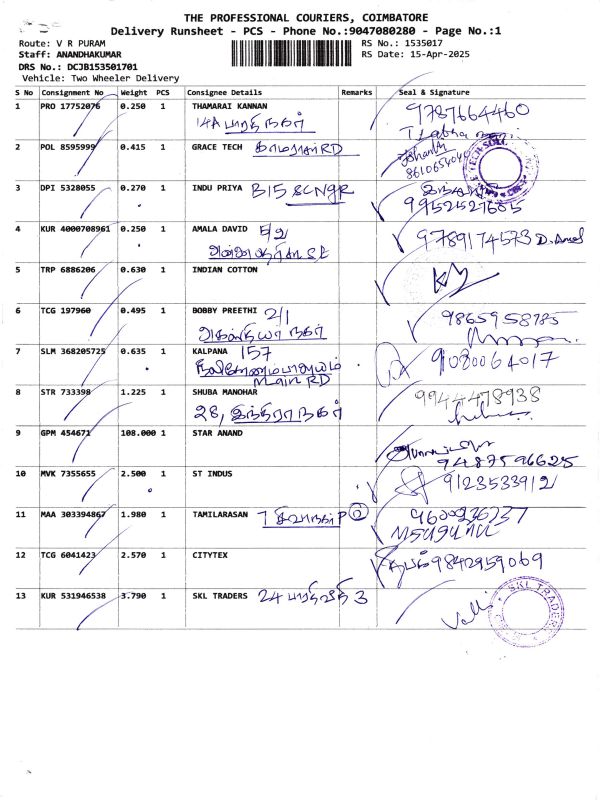 THE PROFESSIONAL COURIERS, COIMBATORE
Delivery Runsheet - PCS - Phone No.:9047080280 - Page No.:1
Route: V R PURAM
RS No.: 1535017
Staff: ANANDHAKUMAR
RS Date: 15-Apr-2025
DRS No.: DCJB153501701
Vehicle: Two Wheeler Delivery
S No Consignment No Weight PCS Consignee Details Remarks Seal & Signature
1 PRO 17752076 0.250 1 THAMARAI KANNAN 9787664460
14A பாரதிநகர்
2 POL 8595999 0.415 1 GRACE TECH காமராஜர் RD
3 DPI 5328055 0.270 1 INDU PRIYA B15 SCNGR
9952527685
4 KUR 4000708961 0.250 1 AMALA DAVID E/2 9789174573
5 TRP 6886206 0.630 1 INDIAN COTTON
6 TCG 197960 0.495 1 BOBBY PREETHI 2/1 9865958785
7 SLM 368205725 0.635 1 KALPANA 157 9080064017
Main RD
8 STR 733398 1.225 1 SHUBA MANOHAR 9944478938
28, இந்திராநகர்
9 GPM 454671 108.000 1 STAR ANAND
9487596625
10 MVK 7355655 2.500 1 ST INDUS 9123533912
11 MAA 303394867 1.980 1 TAMILARASAN 7 9600236737
12 TCG 6041423 2.570 1 CITYTEX 9842959069
13 KUR 531946538 3.790 1 SKL TRADERS 24 பாரதிவீதி 3
SKL TRADERS